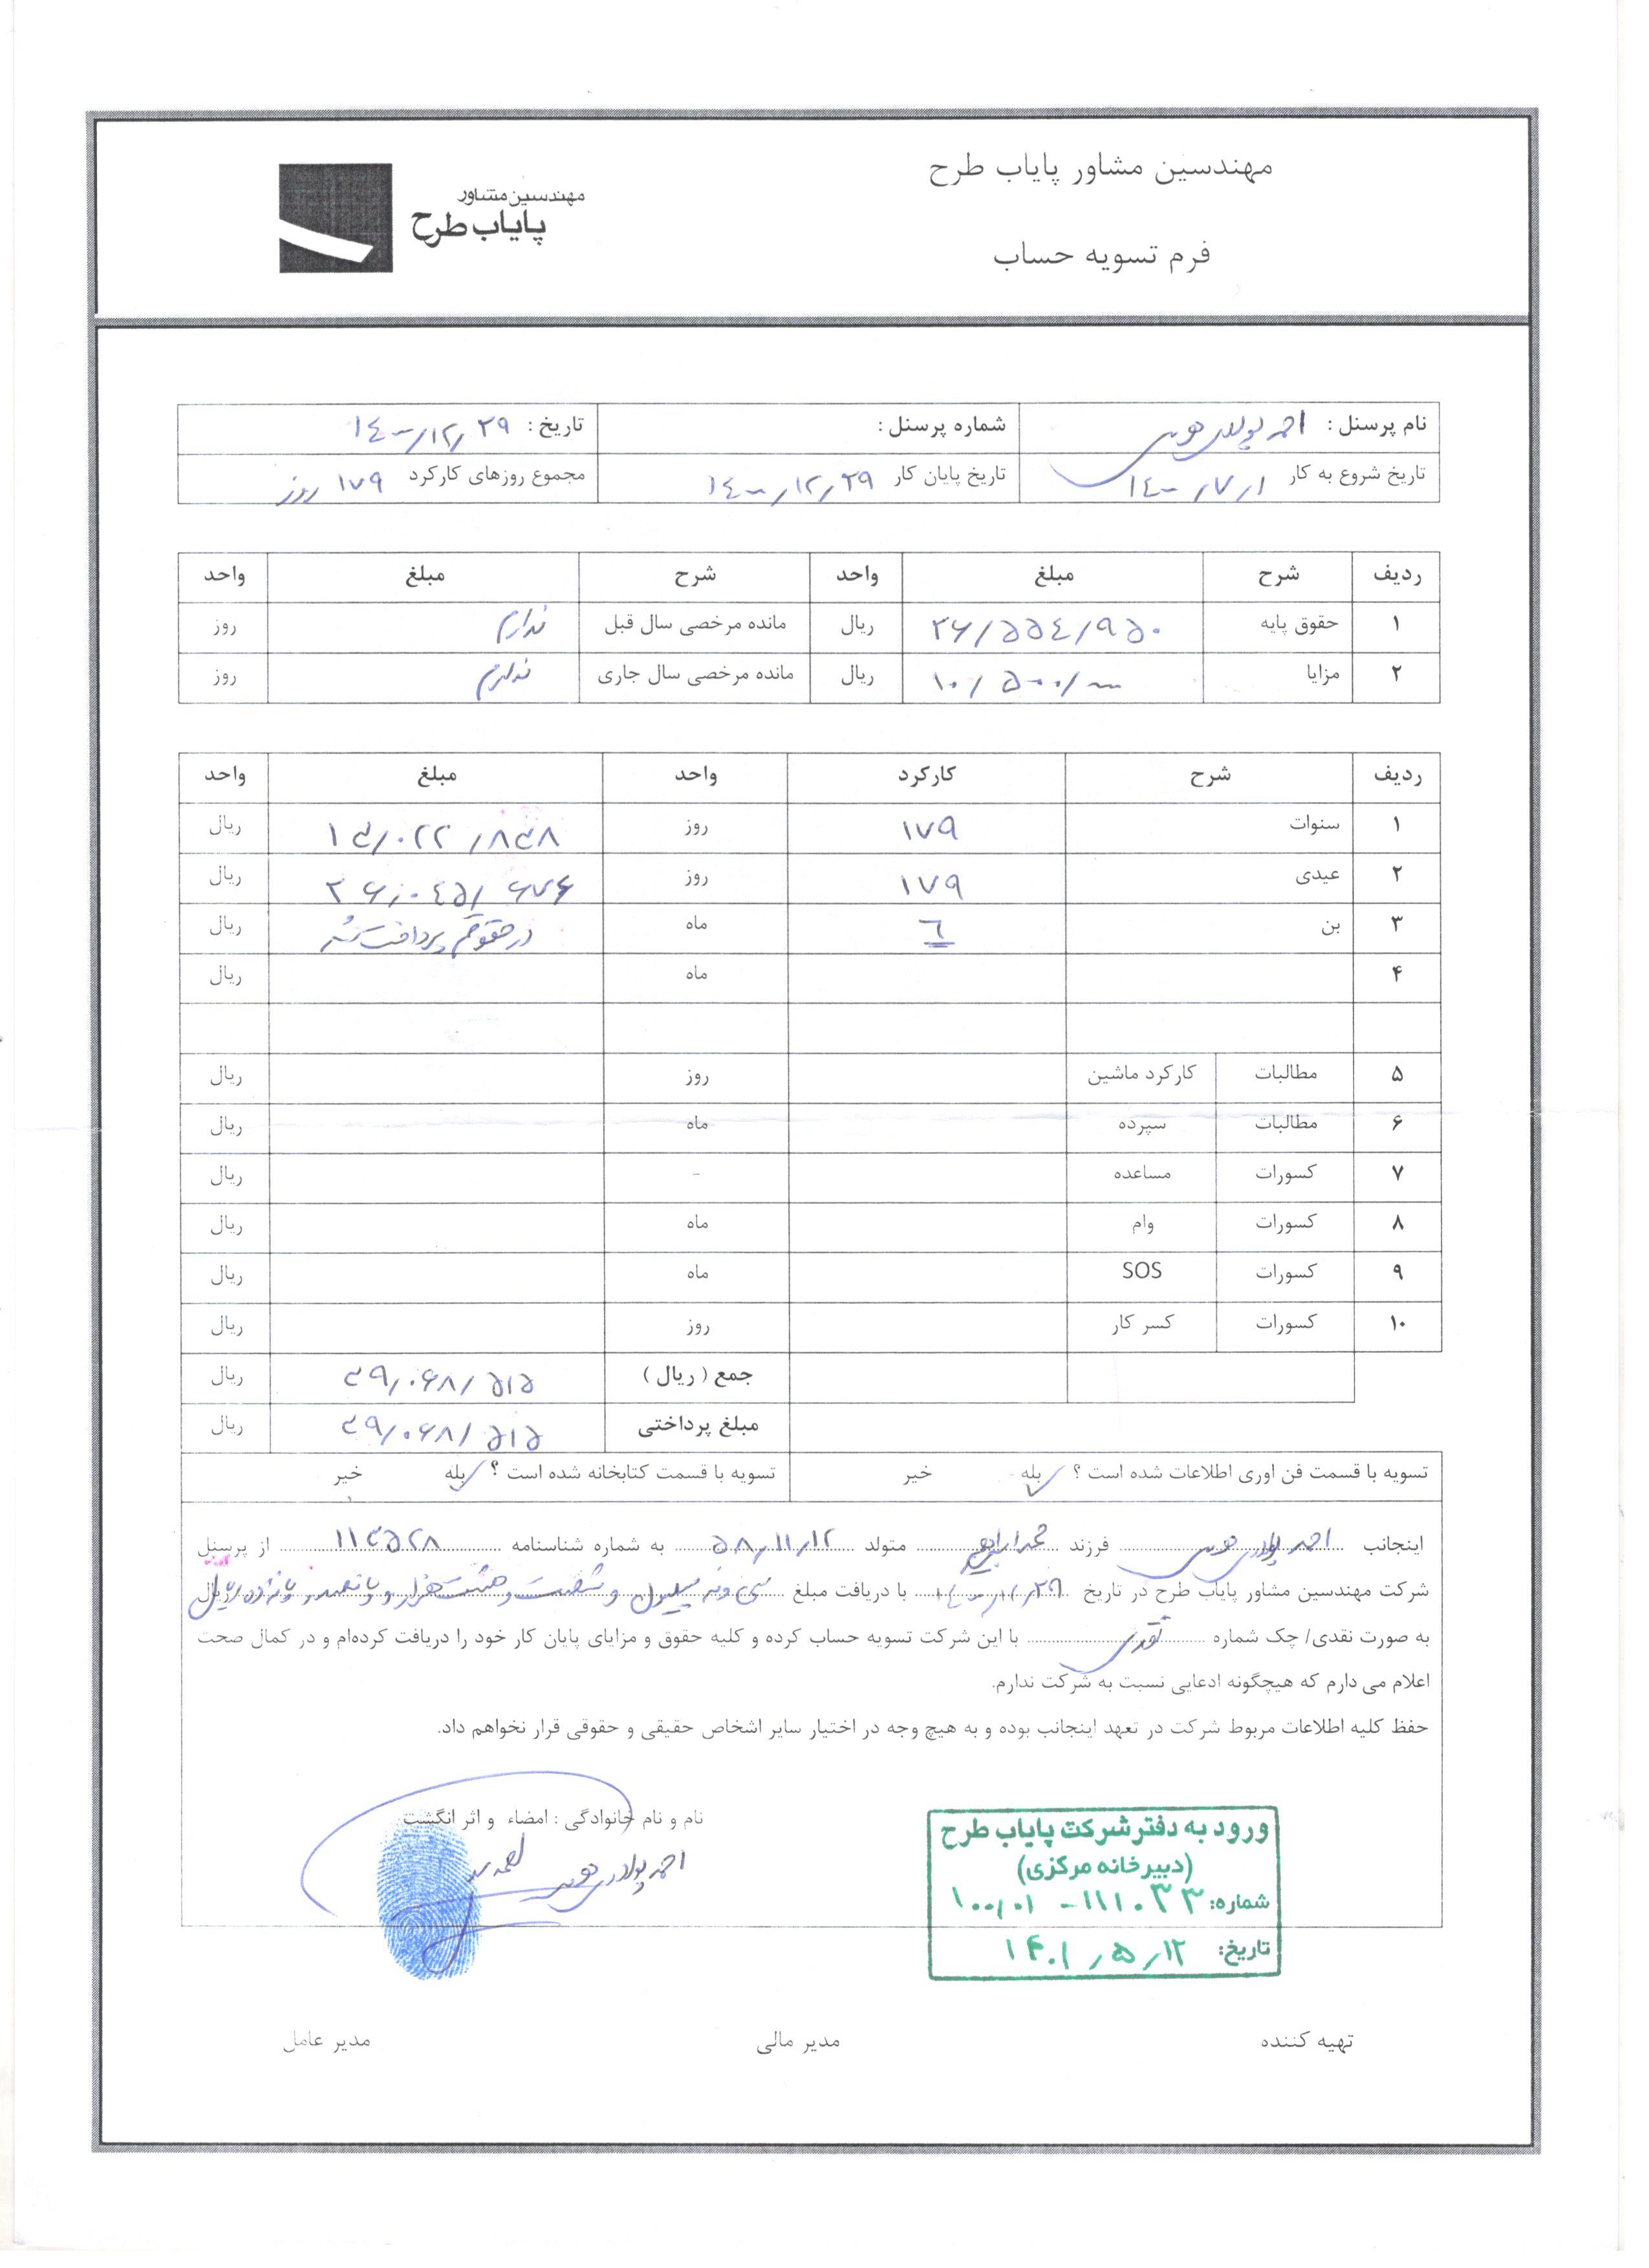 مهندسین مشاور پایاب طرح
مهندسین مشاور
پایاب طرح
فرم تسویه حساب
نام پرسنل : احمد شماره پرسنل : تاریخ : ۱۴۰۰/۱۲/۲۹
تاریخ شروع به کار ۱۴۰۰/۷/۱ تاریخ پایان کار ۱۴۰۰/۱۲/۲۹ مجموع روزهای کارکرد ۱۷۹ روز
ردیف شرح مبلغ واحد شرح مبلغ واحد
۱ حقوق پایه ۲۶/۵۵۴/۹۵۰ ریال مانده مرخصی سال قبل ندارم روز
۲ مزایا ۱۰/۵۰۰/۰۰۰ ریال مانده مرخصی سال جاری ندارم روز
ردیف شرح کارکرد واحد مبلغ واحد
۱ سنوات ۱۷۹ روز ۱۳/۰۲۲/۸۳۸ ریال
۲ عیدی ۱۷۹ روز ۲۶/۰۴۵/۶۷۶ ریال
۳ بن ۶ ماه در حقوقم پرداخت شد ریال
۴ ماه ریال
۵ مطالبات کارکرد ماشین روز ریال
۶ مطالبات سپرده ماه ریال
۷ کسورات مساعده - ریال
۸ کسورات وام ماه ریال
۹ کسورات SOS ماه ریال
۱۰ کسورات کسر کار روز ریال
جمع ( ریال ) ۳۹/۰۶۸/۵۱۵ ریال
مبلغ پرداختی ۳۹/۰۶۸/۵۱۵ ریال
تسویه با قسمت فن اوری اطلاعات شده است ؟ بله خیر تسویه با قسمت کتابخانه شده است ؟ بله خیر
اینجانب احمد فرزند محمدابراهیم متولد ۵۸/۱۱/۱۲ به شماره شناسنامه ۱۱۳۵۲۸ از پرسنل
شرکت مهندسین مشاور پایاب طرح در تاریخ ۱۴۰۰/۱۲/۲۹ با دریافت مبلغ سی و نه میلیون و شصت و هشت هزار و پانصد و پانزده ریال
به صورت نقدی/ چک شماره نقدی با این شرکت تسویه حساب کرده و کلیه حقوق و مزایای پایان کار خود را دریافت کرده‌ام و در کمال صحت
اعلام می دارم که هیچگونه ادعایی نسبت به شرکت ندارم.
حفظ کلیه اطلاعات مربوط شرکت در تعهد اینجانب بوده و به هیچ وجه در اختیار سایر اشخاص حقیقی و حقوقی قرار نخواهم داد.
نام و نام خانوادگی : امضاء و اثر انگشت
احمد
ورود به دفتر شرکت پایاب طرح
(دبیرخانه مرکزی)
شماره: ۱۰۰/۰۱ - ۱۱۱۰۳۳
تاریخ: ۱۴۰۱/۵/۱۲
تهیه کننده مدیر مالی مدیر عامل